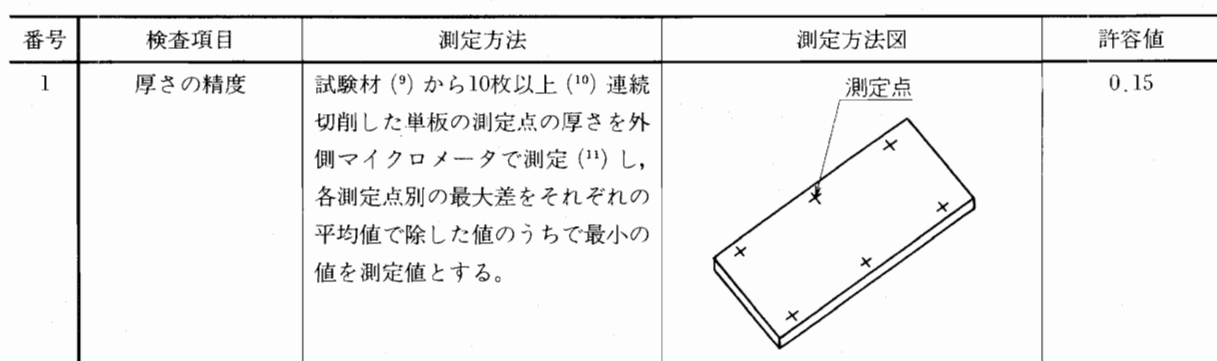 番号 検査項目 測定方法 測定方法図 許容値
1 厚さの精度 試験材(⁹)から10枚以上(¹⁰)連続
切削した単板の測定点の厚さを外
側マイクロメータで測定(¹¹)し,
各測定点別の最大差をそれぞれの
平均値で除した値のうちで最小の
値を測定値とする。
測定点
0.15